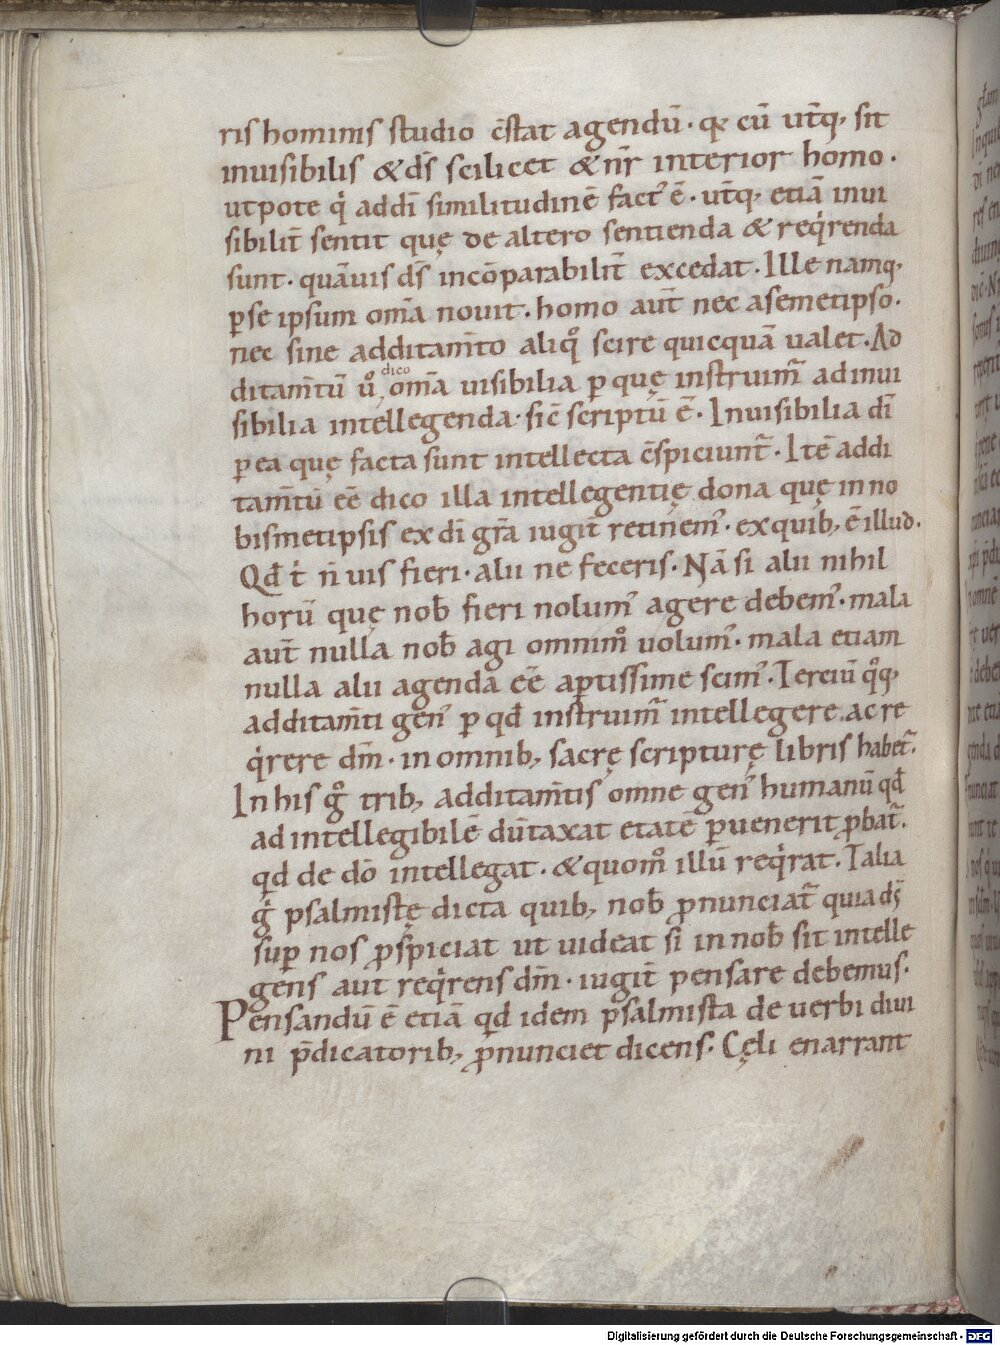 ris hominis studio c̄stat agendū · qꝛ cū ut̄q; sit
inuisibilis & d̄s scilicet & nr̄ interior homo ·
utpote qͥ addī similitudinē factꝰ ē · ut̄q; etiā inui
sibilit̄ sentit quę de altero sentienda & reqͥrenda
sunt · quāuis d̄s incōparabilit̄ excedat · Ille namq;
ꝑse ipsum om̄a nouit · homo aut̄ nec asemetipso ·
nec sine additam̄to aliqͦ scire quicquā ualet · Ad
ditam̄tū uͦ dico om̄a uisibilia ꝑ quę instruim̄ ad inui
sibilia intellegenda · sic̄ scriptū ē · Inuisibilia dī
ꝑ ea quę facta sunt intellecta c̄spiciunt̄ · Itē addi
tam̄tū eē dico illa intellegentię dona quę in no
bismetipsis ex dī gr̄a iugit̄ retinemꝰ · ex quib; ē illud ·
Qđ t̄ n̄ uis fieri · alii ne feceris · Nā si alii nihil
horū quę nob̄ fieri nolumꝰ agere debemꝰ · mala
aut̄ nulla nob̄ agi omnimͦ uolumꝰ · mala etiam
nulla alii agenda eē aꝑtissime scimꝰ · Terciū qͦq;
additam̄ti genꝰ ꝑ qđ instruim̄ intellegere ac re
qͥrere dm̄ · in omnib; sacrę scripturę libris habet̄ ·
In his gͦ trib; additam̄tis omne genꝰ humanū qđ
ad intellegibilē dūtaxat etatē ꝑuenerit ꝓbat̄ ·
qđ de dō intellegat · & quomͦ illū reqͥrat · Talia
gͥ psalmistę dicta quib; nob̄ ꝓnunciat̄ quia d̄s
suꝑ nos ꝓspiciat ut uideat si in nob̄ sit intelle
gens aut reqͥrens dm̄ · iugit̄ pensare debemus ·
Pensandū ē etiā qđ idem psalmista de uerbi diui
ni p̄dicatorib; ꝓnunciet dicens · Cęli enarrant
Digitalisierung gefördert durch die Deutsche Forschungsgemeinschaft - DFG